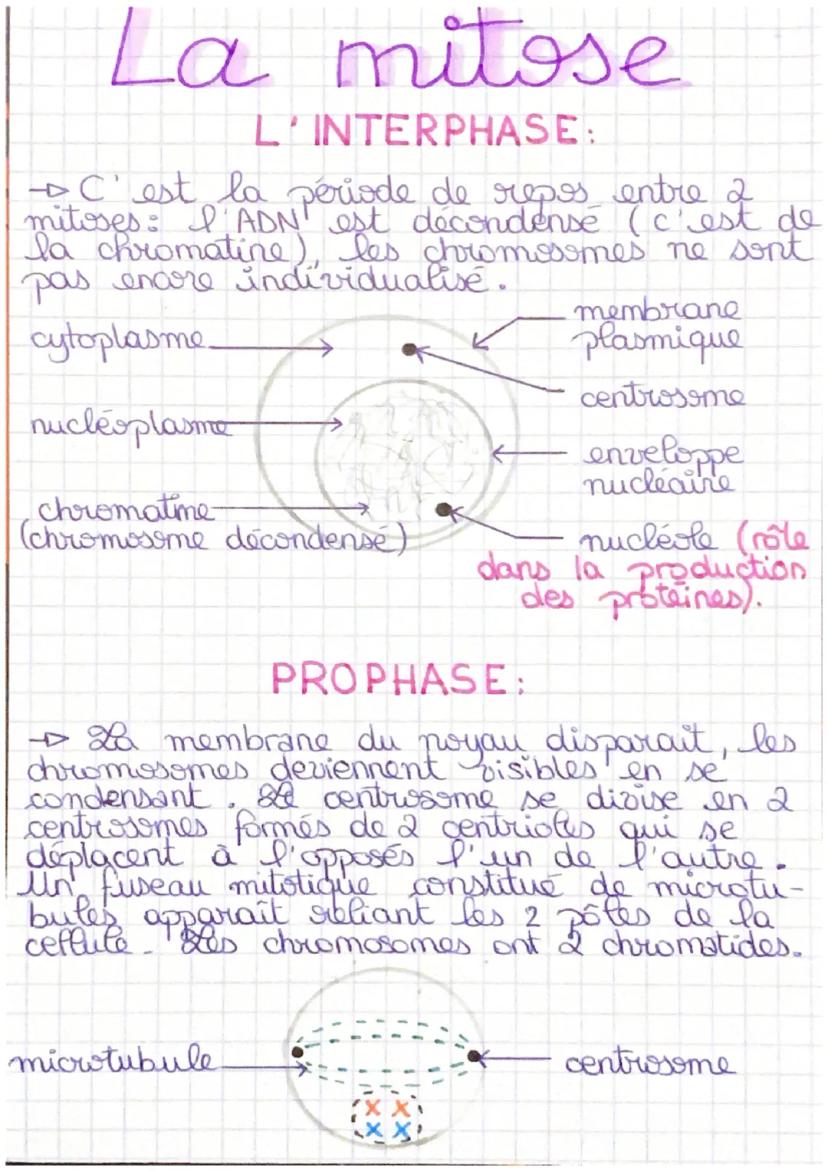 La mitose
L'INTERPHASE:
→ C'est la période de repos entre 2
mitoses: l'ADN est décondensé (c'est de
la chromatine), les chromosomes ne sont
pas encore individualisé.
cytoplasme
membrane
plasmique
centrosome
nucléoplasme
enveloppe
nucléaire
chromatine
(chromosome décondensé)
nucléole (rôle
dans la production
des protéines).
PROPHASE:
→ La membrane du noyau disparait, les
chromosomes deviennent visibles en se
condensant. Le centrosome se divise en 2
centrosomes formés de 2 centrioles qui se
déplaçent à l'opposés l'un de l'autre.
Un fuseau mitotique constitué de microtu-
bules apparaît reliant les 2 pôles de la
cellule. Les chromosomes ont 2 chromatides.
microtubule
centrosome